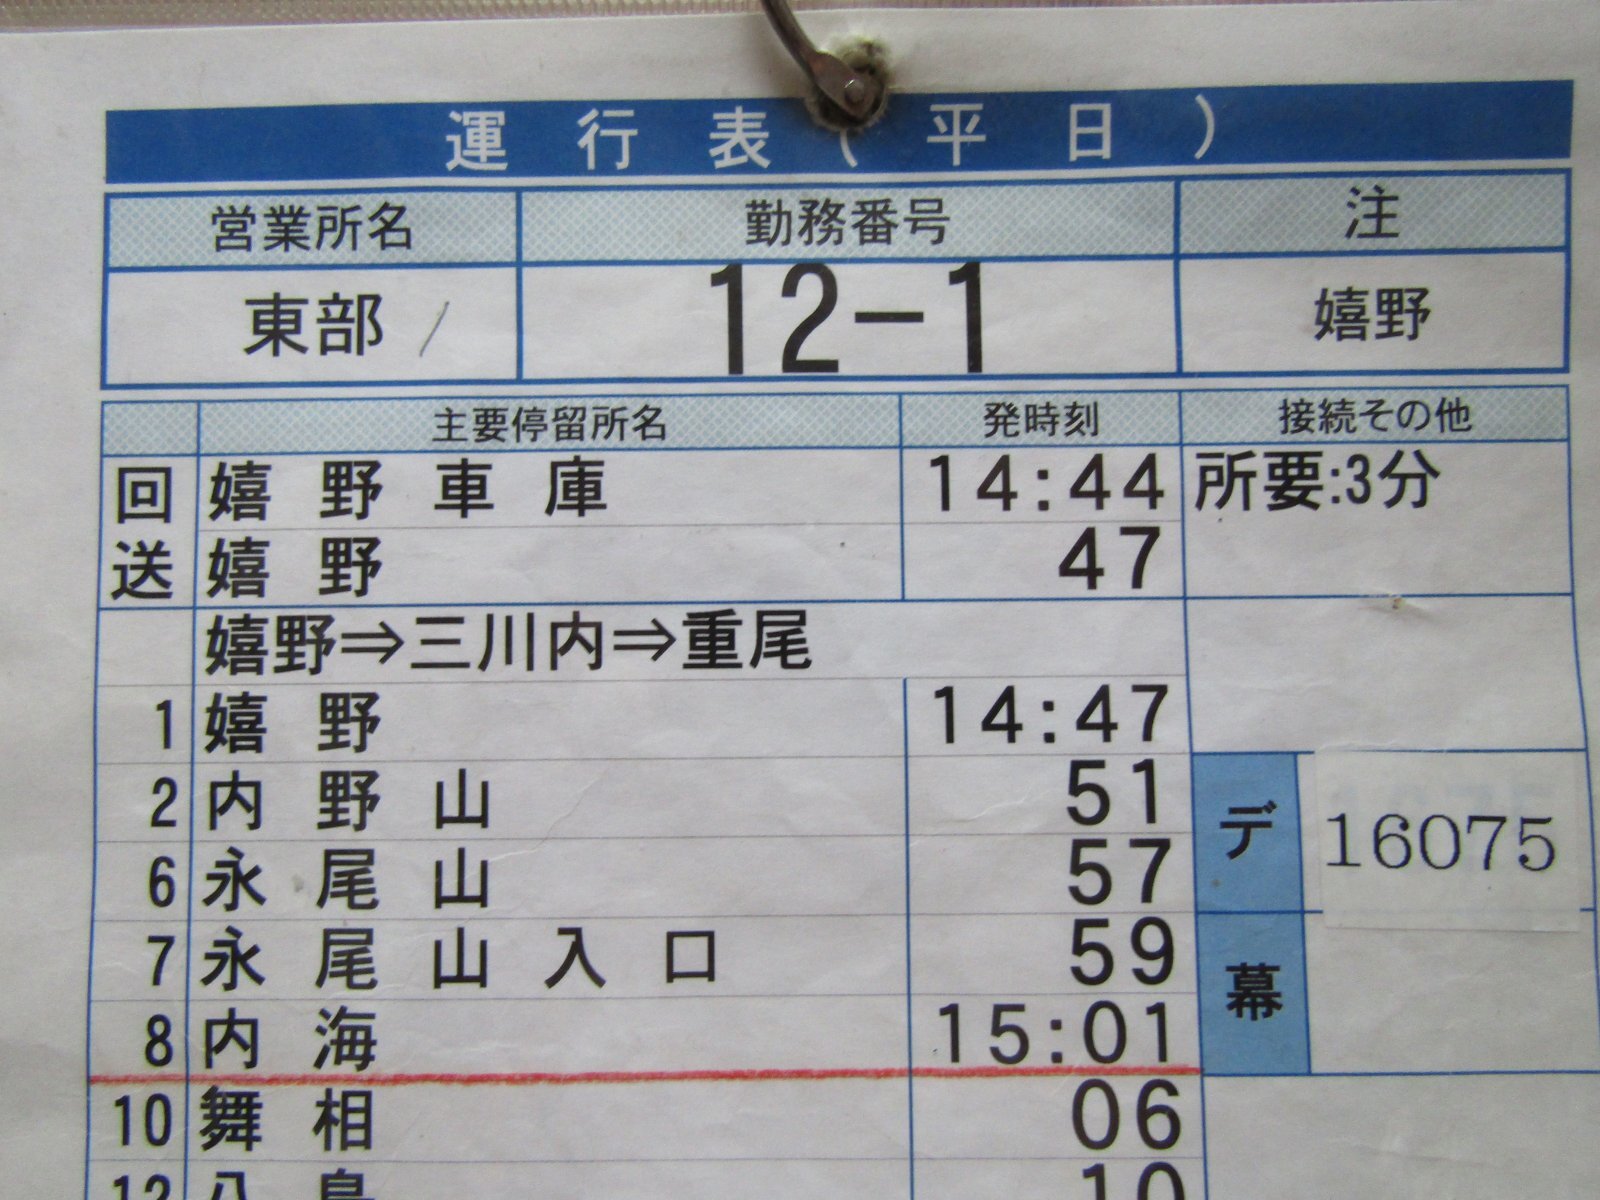 運行表(平日)
営業所名 勤務番号 注
東部 12-1 嬉野
主要停留所名 発時刻 接続その他
回送 嬉野車庫 14:44 所要:3分
嬉野 47
嬉野⇒三川内⇒重尾
1 嬉野 14:47
2 内野山 51
デ 16075
6 永尾山 57
7 永尾山入口 59
幕
8 内海 15:01
10 舞相 06
12 10